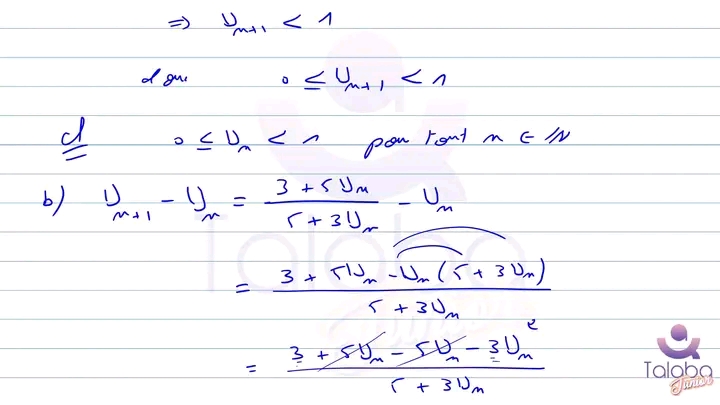 ⇒ U_{n+1} < 1
donc 0 ≤ U_{n+1} < 1
cl 0 ≤ U_n < 1 pour tout n ∈ ℕ
b) U_{n+1} - U_n = \frac{3 + 5U_n}{5 + 3U_n} - U_n
= \frac{3 + 5U_n - U_n(5 + 3U_n)}{5 + 3U_n}
= \frac{3 + 5U_n - 5U_n - 3U_n^2}{5 + 3U_n}
Taloba
Junior